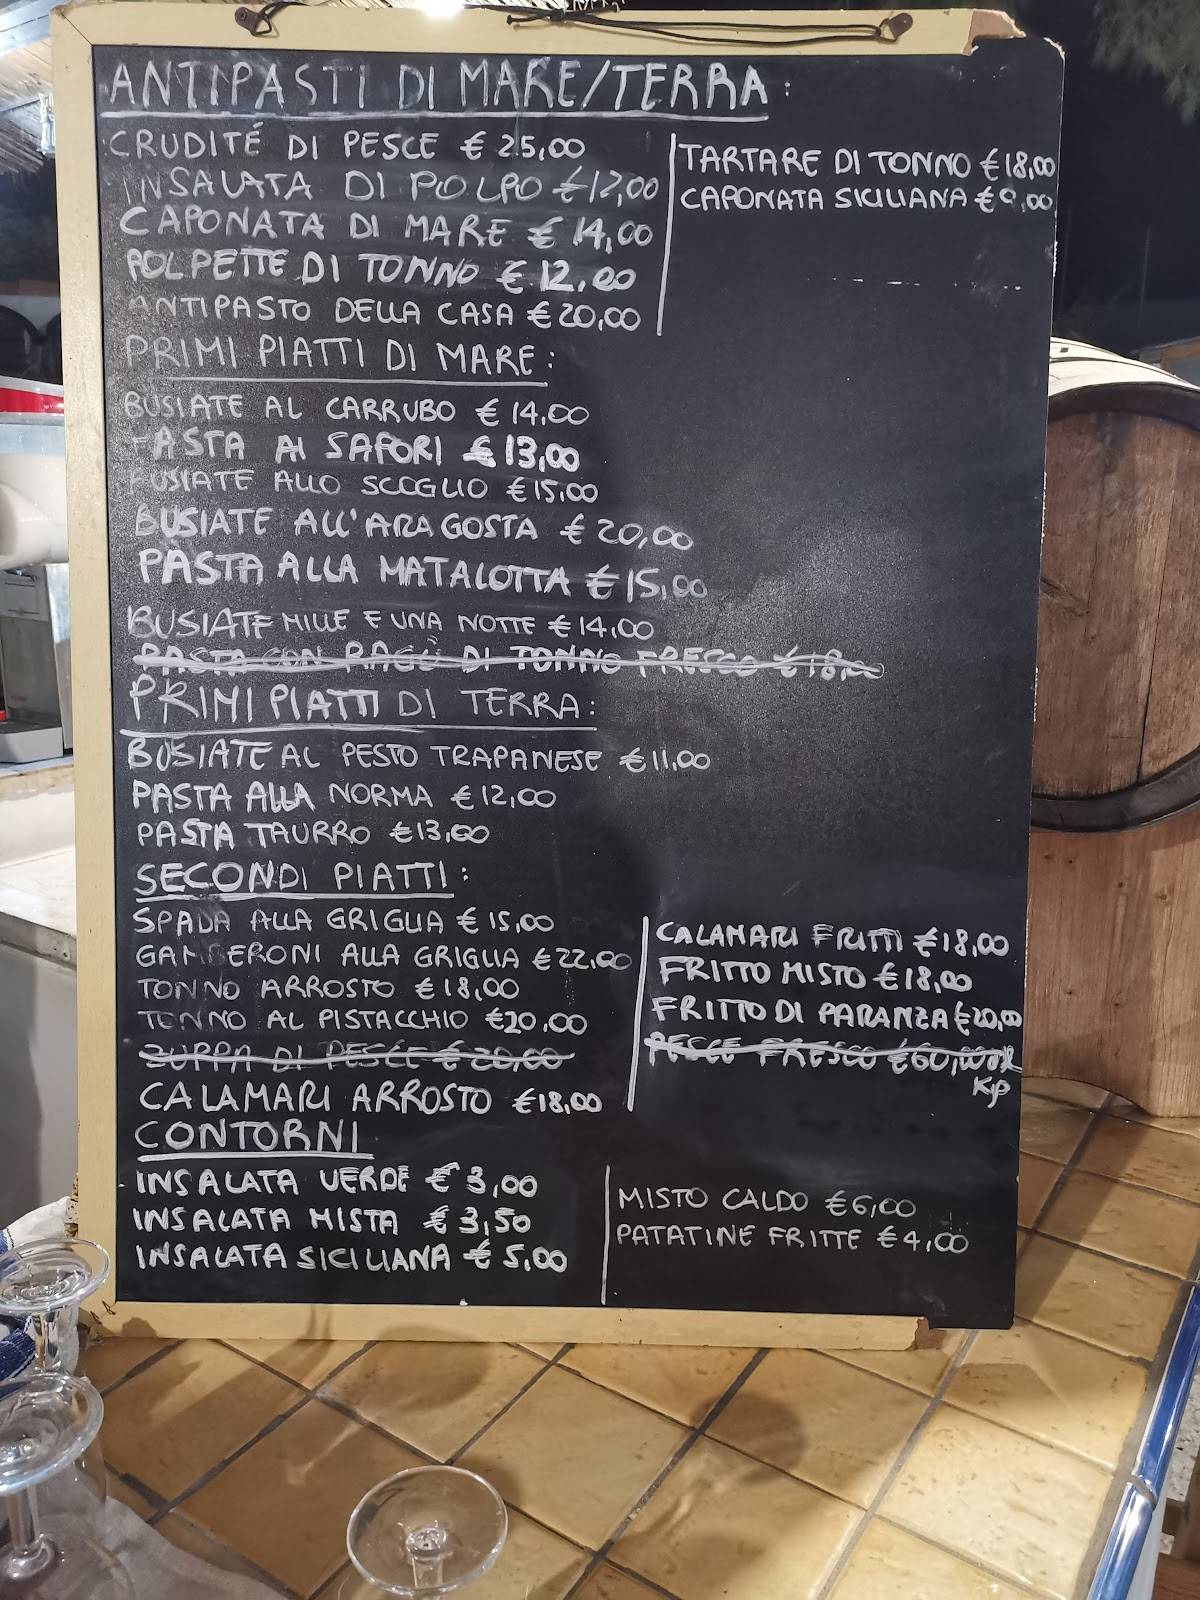 ANTIPASTI DI MARE/TERRA:
CRUDITÉ DI PESCE € 25,00
INSALATA DI POLPO €12,00
CAPONATA DI MARE € 14,00
POLPETTE DI TONNO € 12,00
ANTIPASTO DELLA CASA € 20,00
TARTARE DI TONNO €18,00
CAPONATA SICILIANA €9,00
PRIMI PIATTI DI MARE:
BUSIATE AL CARRUBO € 14,00
PASTA AI SAPORI € 13,00
BUSIATE ALLO SCOGLIO € 15,00
BUSIATE ALL'ARAGOSTA € 20,00
PASTA ALLA MATALOTTA € 15,00
BUSIATE MILLE E UNA NOTTE € 14,00
PASTA CON RAGÙ DI TONNO FRESCO €18,00
PRIMI PIATTI DI TERRA:
BUSIATE AL PESTO TRAPANESE € 11,00
PASTA ALLA NORMA € 12,00
PASTA TAURRO €13,00
SECONDI PIATTI:
SPADA ALLA GRIGLIA € 15,00
GAMBERONI ALLA GRIGLIA € 22,00
TONNO ARROSTO € 18,00
TONNO AL PISTACCHIO €20,00
ZUPPA DI PESCE € 20,00
CALAMARI ARROSTO €18,00
CALAMARI FRITTI €18,00
FRITTO MISTO €18,00
FRITTO DI PARANZA €20,00
PESCE FRESCO €60,00 al
Kg
CONTORNI
INSALATA VERDE € 3,00
INSALATA MISTA € 3,50
INSALATA SICILIANA € 5,00
MISTO CALDO €6,00
PATATINE FRITTE €4,00